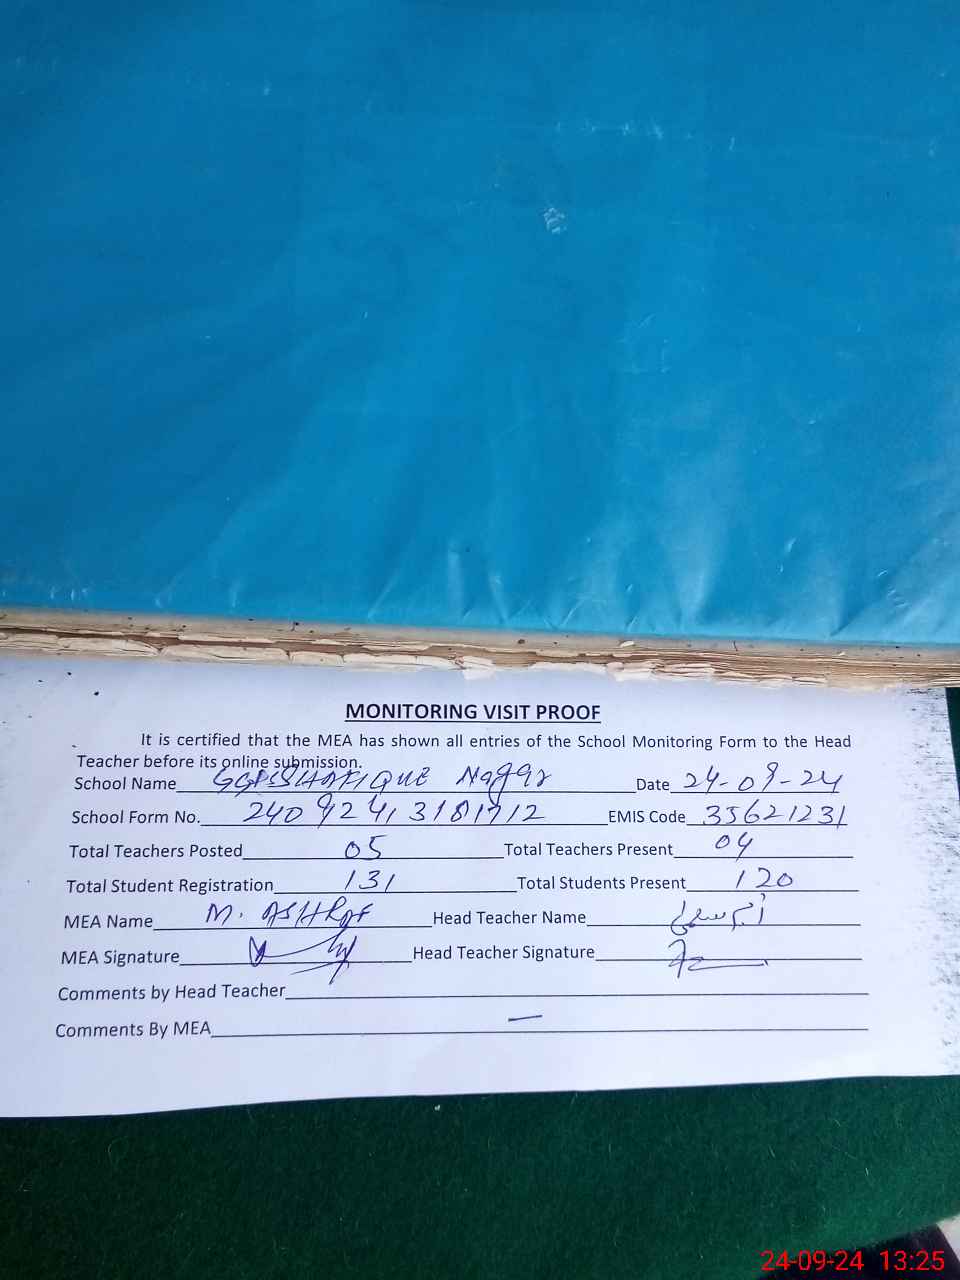 MONITORING VISIT PROOF
It is certified that the MEA has shown all entries of the School Monitoring Form to the Head
Teacher before its online submission.
School Name GGPS SHAFIQUE Naggar Date 24-09-24
School Form No. 240924131 EMIS Code 35621231
Total Teachers Posted 05 Total Teachers Present 04
Total Student Registration 131 Total Students Present 120
MEA Name M. ASHRAF Head Teacher Name
MEA Signature Head Teacher Signature
Comments by Head Teacher
Comments By MEA —
24-09-24 13:25